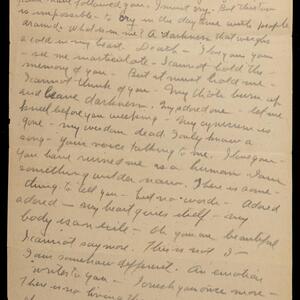 have followed you. I must cry. But that too
is impossible - to cry in the day time with people
around. What is in me! A darkness that weighs
a cold in my heart. Death - I love you
me material - I cannot hold the
memory of you. But it must hold me -
I cannot think of you - My thots burn up
and leave darkness. My adored one - let me
kneel before you weeping - My cynicism is
gone - my wisdom dead. I only know a
song - your voice talking to me. I love you -
You have ruined me as a human - I am
something wilder now. There is some-
thing to tell you - but no words - Adored
adored - my heart gives itself - my
body is an exile - Oh you are beautiful
I cannot say more. This is not I -
I am somehow different. An emotion
writes to you - I reach you once more -
There is no living